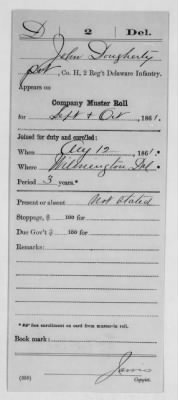 D 2 Del.
John Dougherty
Pvt, Co. H, 2 Reg't Delaware Infantry.
Appears on
Company Muster Roll
for Sept & Oct, 1861.
Joined for duty and enrolled:
When Aug 12, 1861.*
Where Wilmington Del *
Period 3 years.*
Present or absent Not Stated
Stoppage, $ 100 for
Due Gov't $ 100 for
Remarks:
* See enrollment on card from muster-in roll.
Book mark:
Copyist.